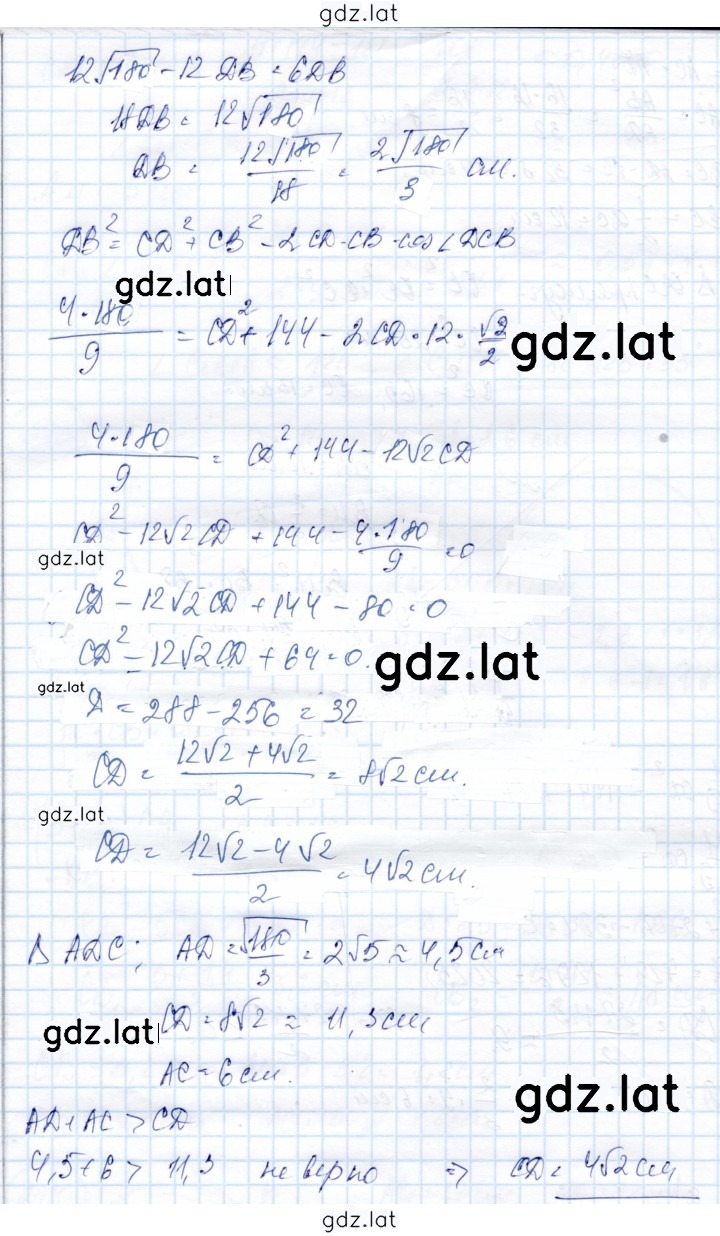 gdz.lat
12√180 - 12 DB = 6DB
18DB = 12√180
DB = 12√180/18 = 2√180/3 см.
DB² = CD² + CB² - 2CD·CB·cos∠DCB
gdz.lat
4·180/9 = CD² + 144 - 2CD·12·√2/2
gdz.lat
4·180/9 = CD² + 144 - 12√2CD
CD² - 12√2CD + 144 - 4·180/9 = 0
gdz.lat
CD² - 12√2CD + 144 - 80 = 0
CD² - 12√2CD + 64 = 0.
gdz.lat
gdz.lat
D = 288 - 256 = 32
CD = (12√2 + 4√2)/2 = 8√2 см.
gdz.lat
CD = (12√2 - 4√2)/2 = 4√2 см.
Δ ADC; AD = √180/3 = 2√5 ≈ 4,5 см
CD = 8√2 ≈ 11,3 см
gdz.lat
AC = 6 см.
gdz.lat
AD + AC > CD
4,5 + 6 > 11,3 неверно => CD = 4√2 см
gdz.lat